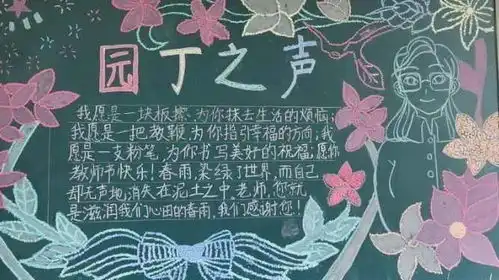 园丁之声
我愿是一块板擦,为你抹去生活的烦恼;
我愿是一把教鞭,为你指引幸福的方向;我
愿是一支粉笔,为你书写美好的祝福;愿你
教师节快乐!春雨,染绿了世界,而自己
却无声地消失在泥土之中,老师,您就
是滋润我们心田的春雨,我们感谢您!